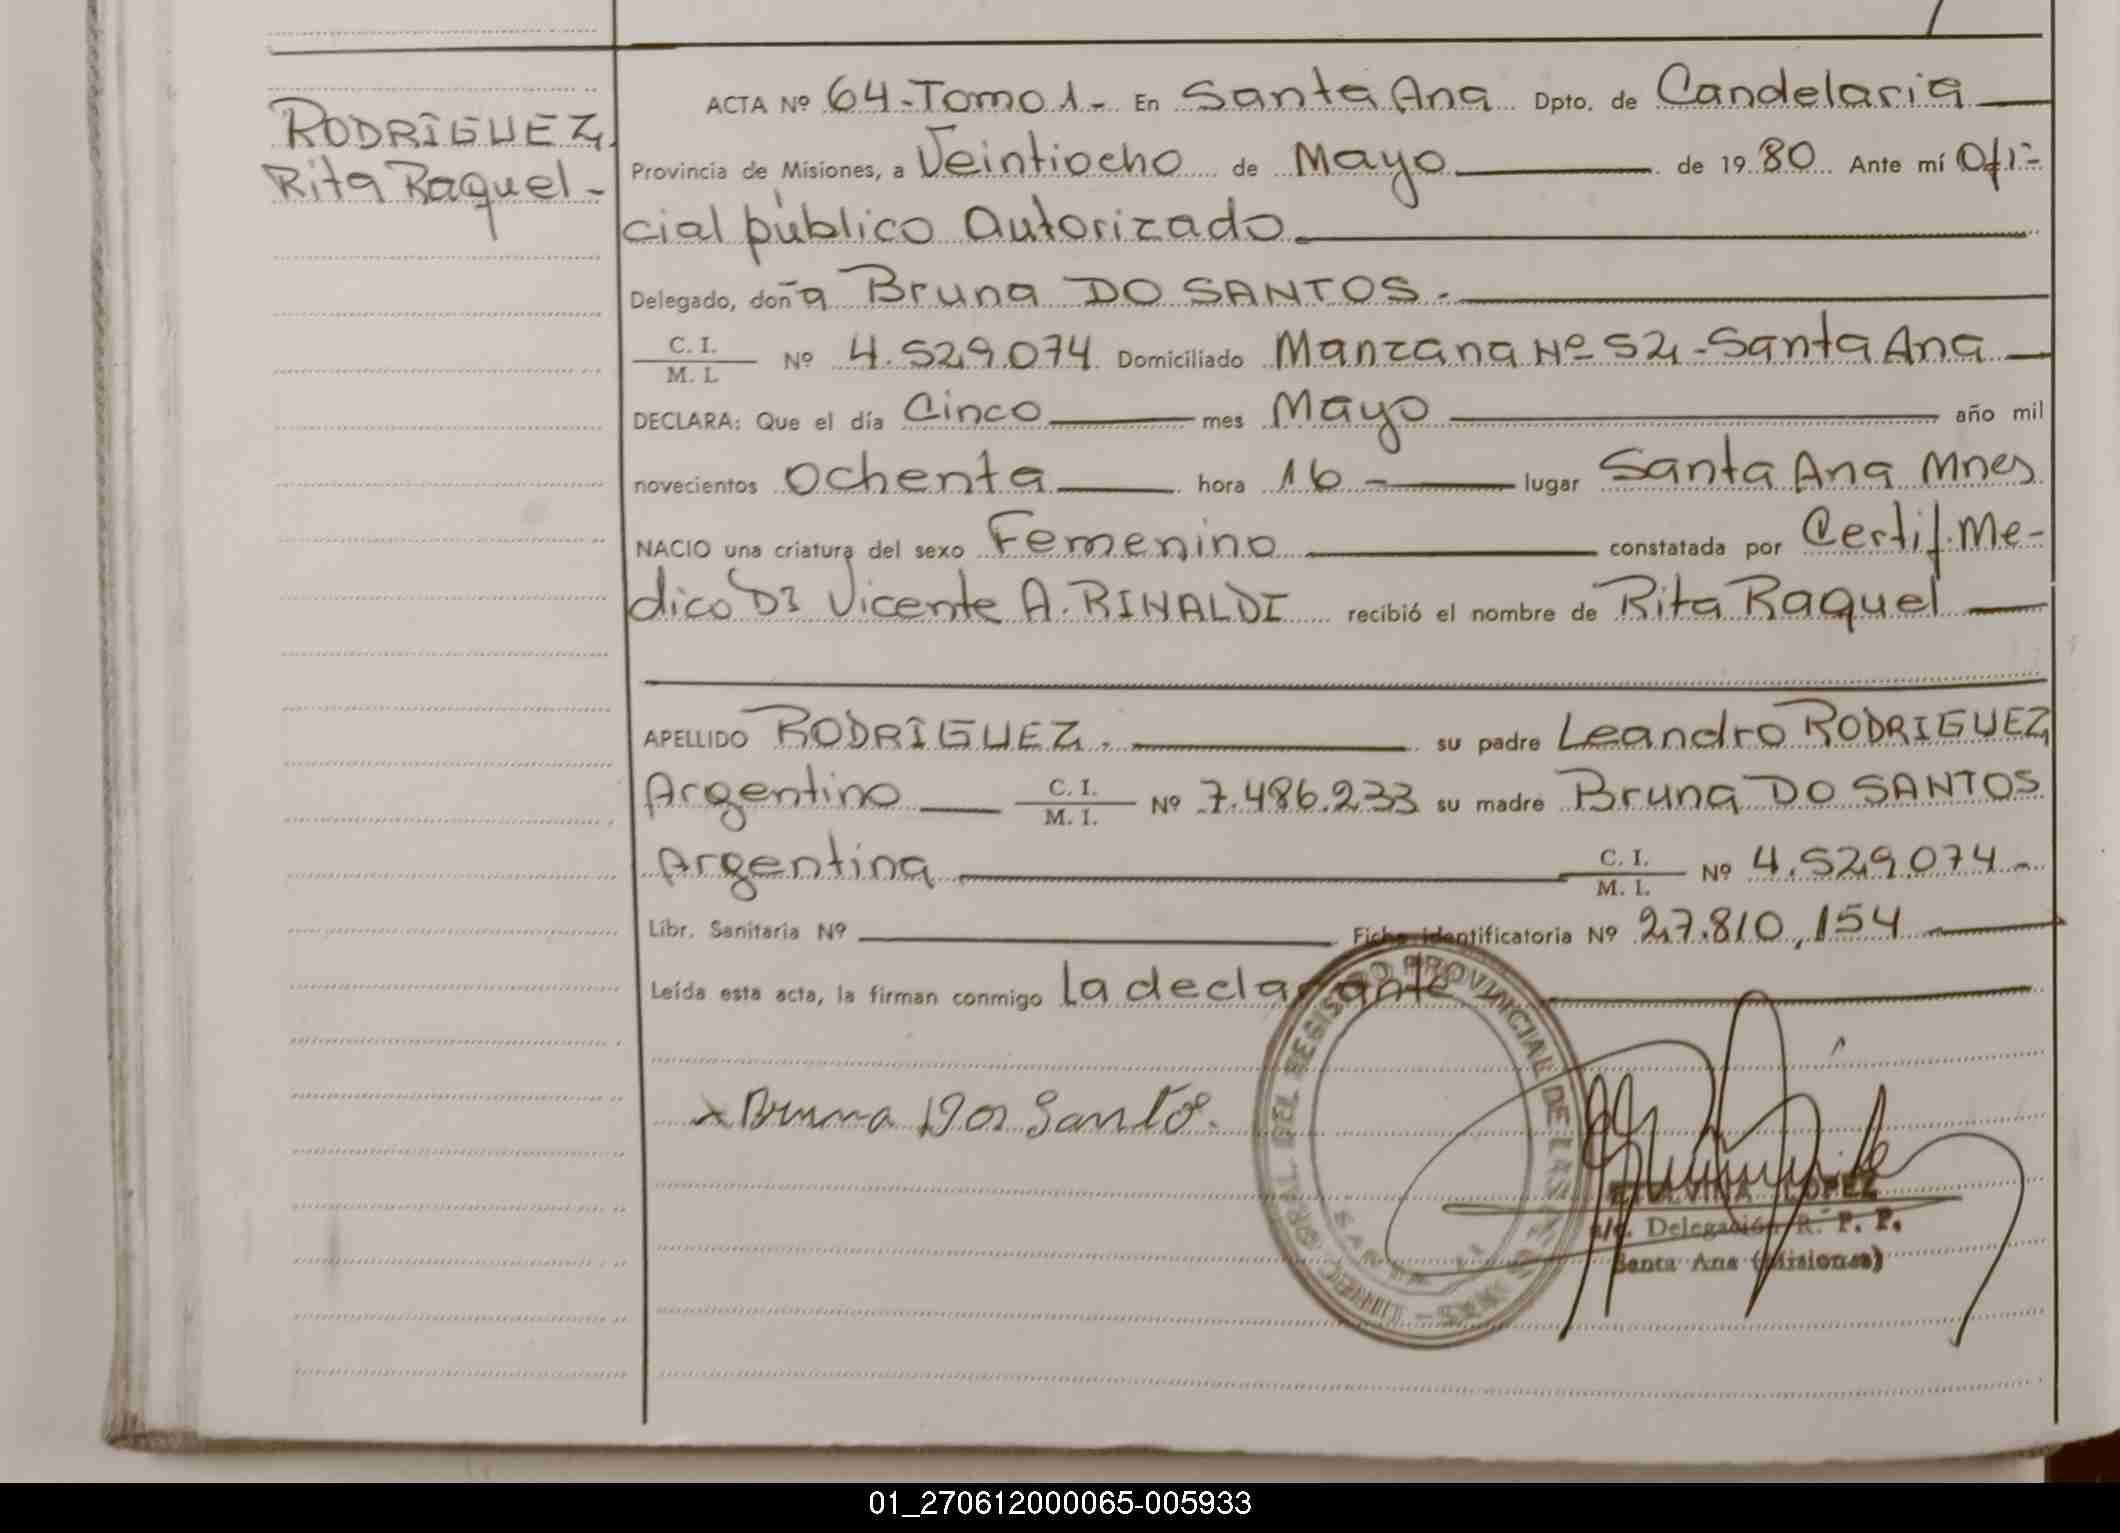 RODRIGUEZ,
Rita Raquel-
ACTA Nº 64-Tomo 1- En Santa Ana Dpto. de Candelaria
Provincia de Misiones, a Veintiocho de Mayo de 1980 Ante mí Ofi-
cial público Autorizado
Delegado, doña Bruna DO SANTOS.
C. I.
M. I. Nº 4.529.074 Domiciliado Manzana Nº 52-Santa Ana
DECLARA: Que el día Cinco mes Mayo año mil
novecientos Ochenta hora 16 - lugar Santa Ana Mnes
NACIO una criatura del sexo Femenino constatada por Certif. Me-
dico Dr Vicente A. RINALDI recibió el nombre de Rita Raquel
APELLIDO RODRIGUEZ. su padre Leandro RODRIGUEZ,
Argentino C. I. M. I. Nº 7.486.233 su madre Bruna DO SANTOS
Argentina C. I. M. I. Nº 4.529.074-
Libr. Sanitaria Nº Ficha identificatoria Nº 27.810,154
Leída esta acta, la firman conmigo la declarante
x Bruna Dos Santos.
REGISTRO PROVINCIAL DE LAS
LOPEZ
a/c. Delegación R. P. P.
Santa Ana (Misiones)
01_270612000065-005933